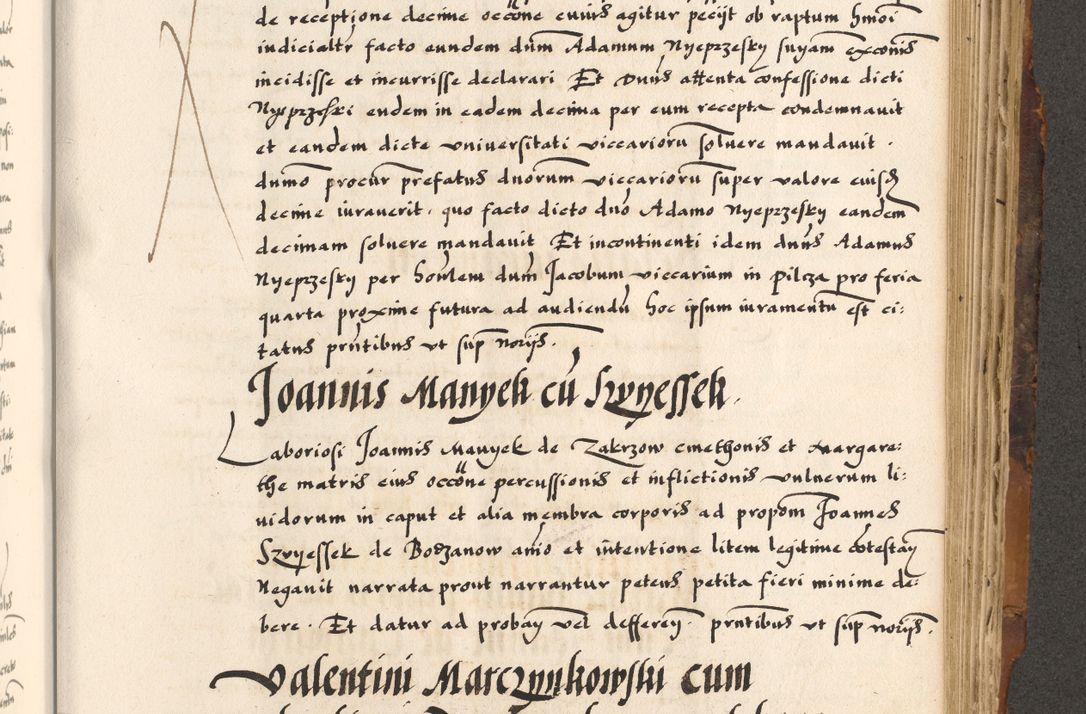 de receptione decime occōne cuius agitur pecijt ob raptum hmōi
iudicialtr facto eundem dum̄ Adamum Nyeprzesky suyam exconis
incidisse et incurrisse declarari Et Dnūs attenta confessione dicti
Nyeprzeski eudem in eadem decima per eum recepta condemnauit
et eandem dicte vniuersitati viccarioru soluere mandauit .
dumō procur prefatus duorum viccarioru super valore eiusd
decime iurauerit . quo facto dicto dno Adamo Nyeprzesky eandem
decimam soluere mandauit Et incontinenti idem dnūs Adamus
Nyeprzesky per honlem dum Jacobum viccarium in Pilcza pro feria
quarta proxime futura ad audiendū hoc ipsum iuramentu est ci:
tatus pn̄tibus vt sup norijs.
Joannis Manyek cū Szyyessek.
Laboriosi Joannis Manyek de Zakrzow cmethonis et Margare:
the matris eius occōne percussionis et inflictionis vulnerum li:
uidorum in caput et alia membra corporis ad propom Joannes
Szyyessek de Bodzanow anīo et intentione litem legitime cōtestan
Negauit narrata prout narrantur petens petita fieri minime de:
bere . Et datur ad proban vel defferen . pn̄tibus vt sup norijs .
Valentini Marczynkowski cum